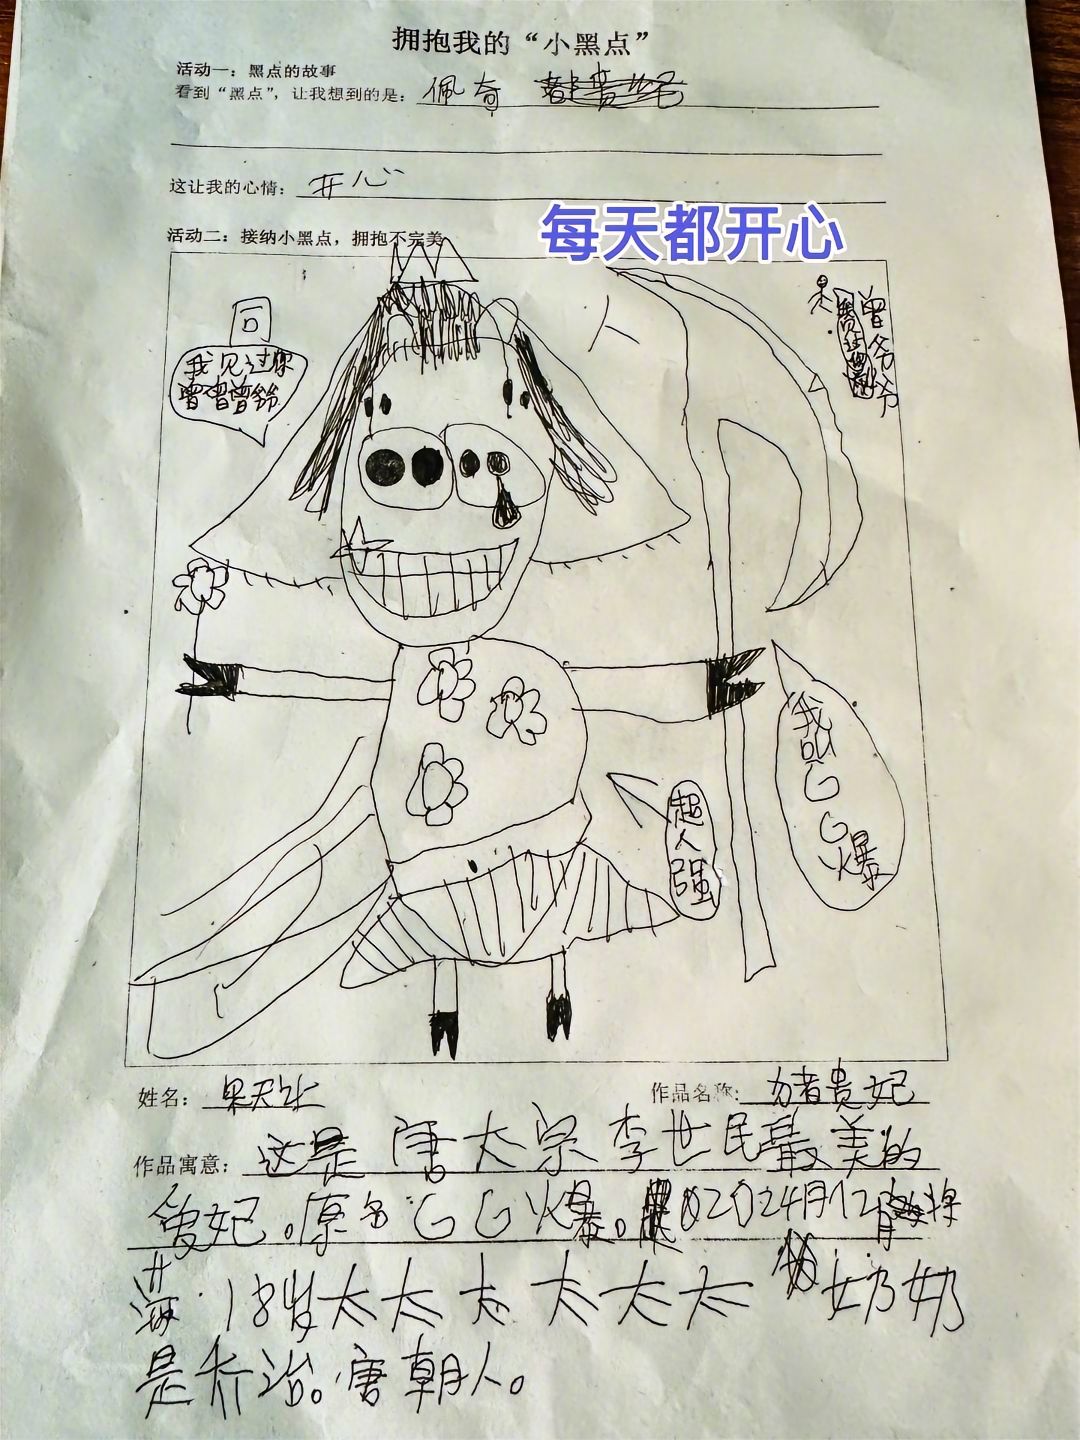 拥抱我的“小黑点”
活动一：黑点的故事
看到“黑点”，让我想到的是：佩奇
这让我的心情：开心
每天都开心
活动二：接纳小黑点，拥抱不完美
我见过你
曾曾曾爷
曾爷爷
我
叫
G
G
爆
超人强
姓名：
作品名称：猪贵妃
作品寓意：这是唐太宗李世民最美的
贵妃。原名GG爆。
18岁太太太太太太奶奶
是乔治。唐朝人。